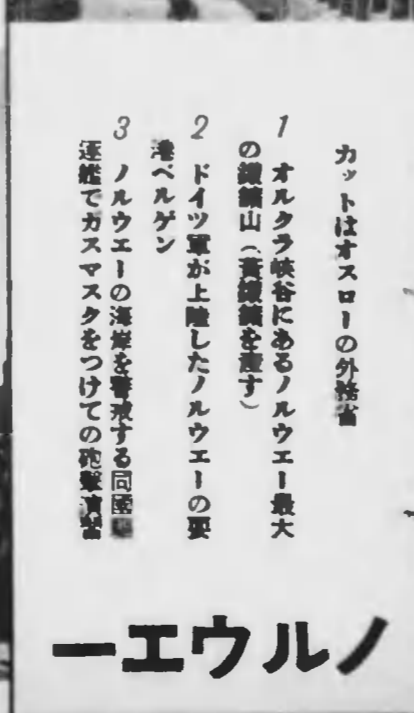 カットはオスローの外務省
1 オルクラ峡谷にあるノルウエー最大
の鐵鑛山(黄鐵鑛を産す)
2 ドイツ軍が上陸したノルウエーの要
港ベルゲン
3 ノルウエーの海岸を警戒する同國
逐艦でガスマスクをつけての砲撃演習
ノルウエー